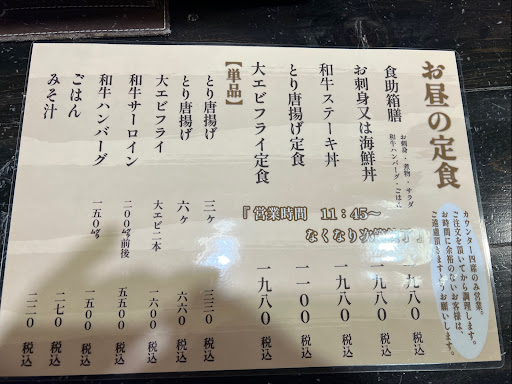 お昼の定食
カウンター四席のみ営業。
ご注文を頂いてから調理します。
お時間に余裕のないお客様は、
ご遠慮頂きますようお願いします。
食助箱膳
お刺身・煮物・サラダ
和牛ハンバーグ・ごはん
一九八〇 税込
お刺身又は海鮮丼 一九八〇 税込
和牛ステーキ丼 一九八〇 税込
とり唐揚げ定食 一一〇〇 税込
大エビフライ定食 一九八〇 税込
『営業時間 11:45〜
なくなり次第終了』
【単品】
とり唐揚げ 三ヶ 三三〇 税込
とり唐揚げ 六ヶ 六六〇 税込
大エビフライ 大エビ二本 一六〇〇 税込
和牛サーロイン 二〇〇㌘前後 五五〇〇 税込
和牛ハンバーグ 一五〇㌘ 一五〇〇 税込
ごはん 二七〇 税込
みそ汁 二二〇 税込